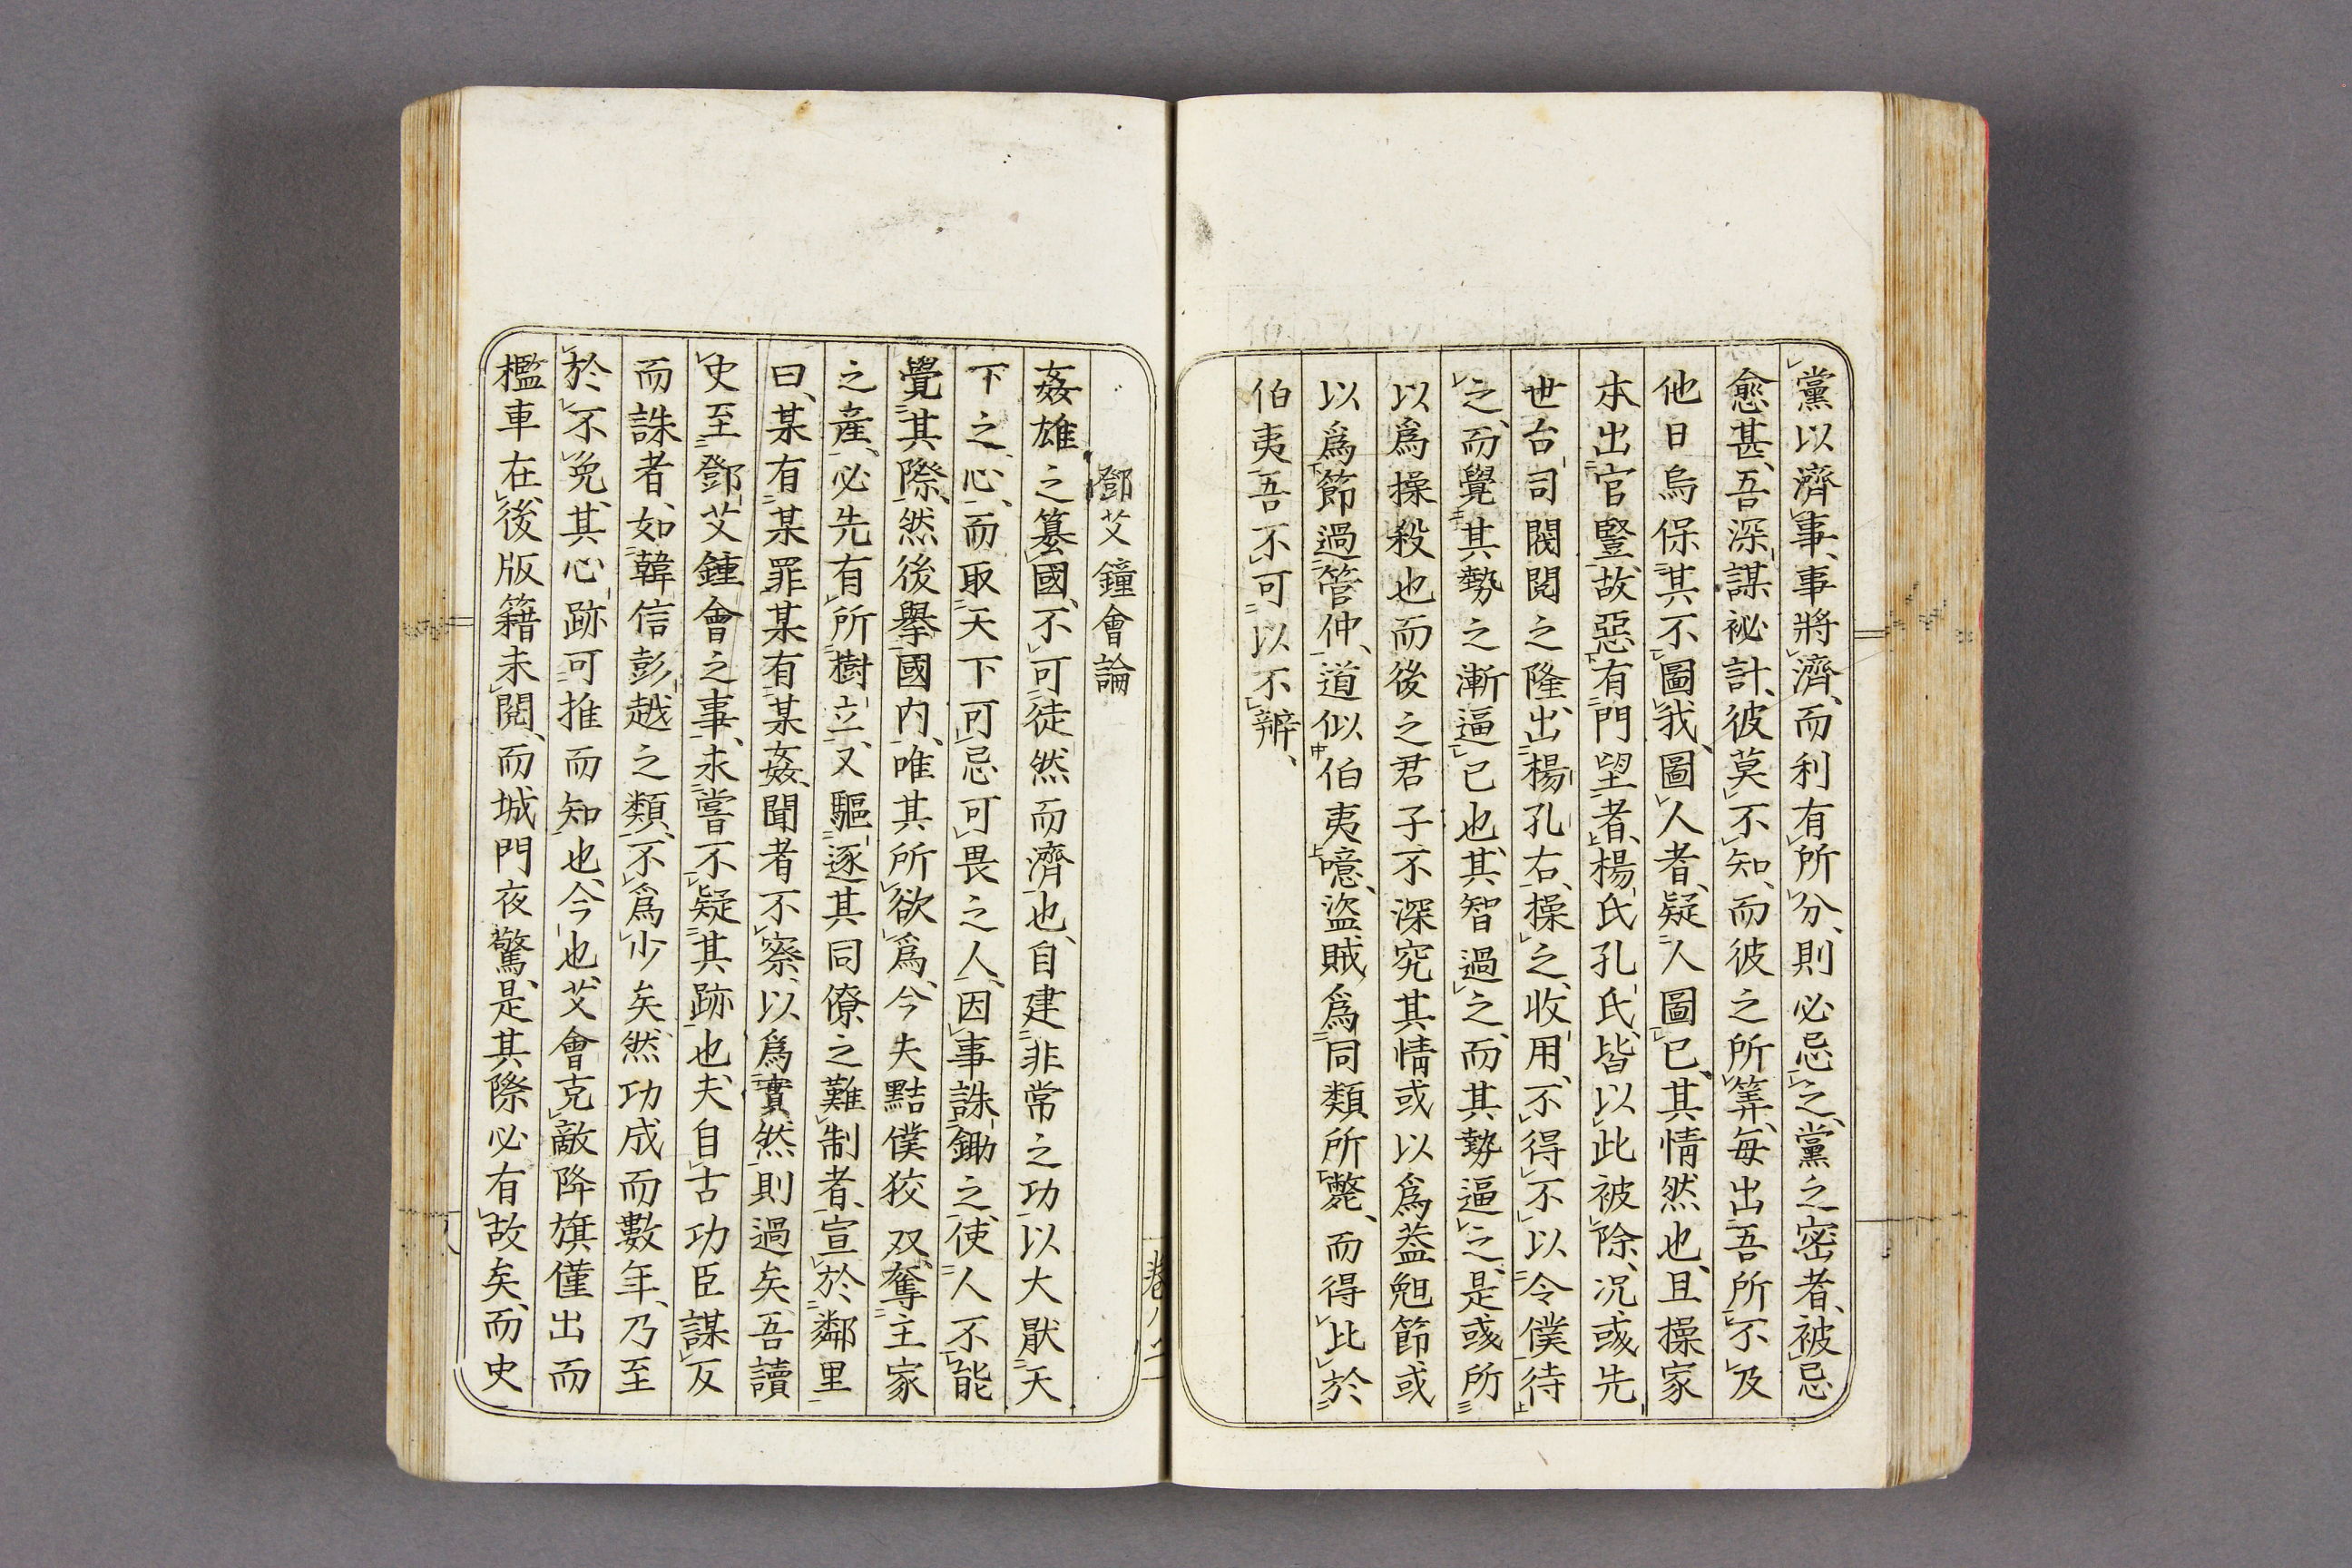 黨以濟事、事將濟、而利有所分、則必忌之、黨之密者、被忌
愈甚、吾深謀祕計、彼莫不知、而彼之所筭、每出吾所不及
他日烏保其不圖我、圖人者、疑人圖已、其情然也、且操家
本出官豎、故惡有門望者、楊氏孔氏、皆以此被除、况彧先
世台司閥閱之隆、出楊孔右、操之收用、不得不以令僕待
之、而覺其勢之漸逼已也、其智過之、而其勢逼之、是彧所
以爲操殺也而後之君子不深究其情或以爲葢愆節或
以爲節過管仲、道似伯夷噫、盜賊爲同類所斃、而得比於
伯夷吾不可以不辨、
鄧艾鐘會論
姦雄之簒國、不可徒然而濟也、自建非常之功以大厭天
下之心、而取天下可忌可畏之人、因事誅鋤之、使人不能
覺其際、然後擧國内、唯其所欲爲、今夫黠僕狡奴奪主家
之産、必先有所樹立、又驅逐其同僚之難制者、宣於鄰里
曰、某有某罪某有某姦、聞者不察、以爲實、然則過矣、吾讀
史至鄧艾鍾會之事、未嘗不疑其跡也、夫自古功臣謀反
而誅者、如韓信彭越之類、不爲少矣、然功成而數年、乃至
於不免、其心跡可推而知也、今也、艾會克敵降旗僅出而
檻車在後版籍未閱、而城門夜驚、是其際必有故矣、而史
卷八